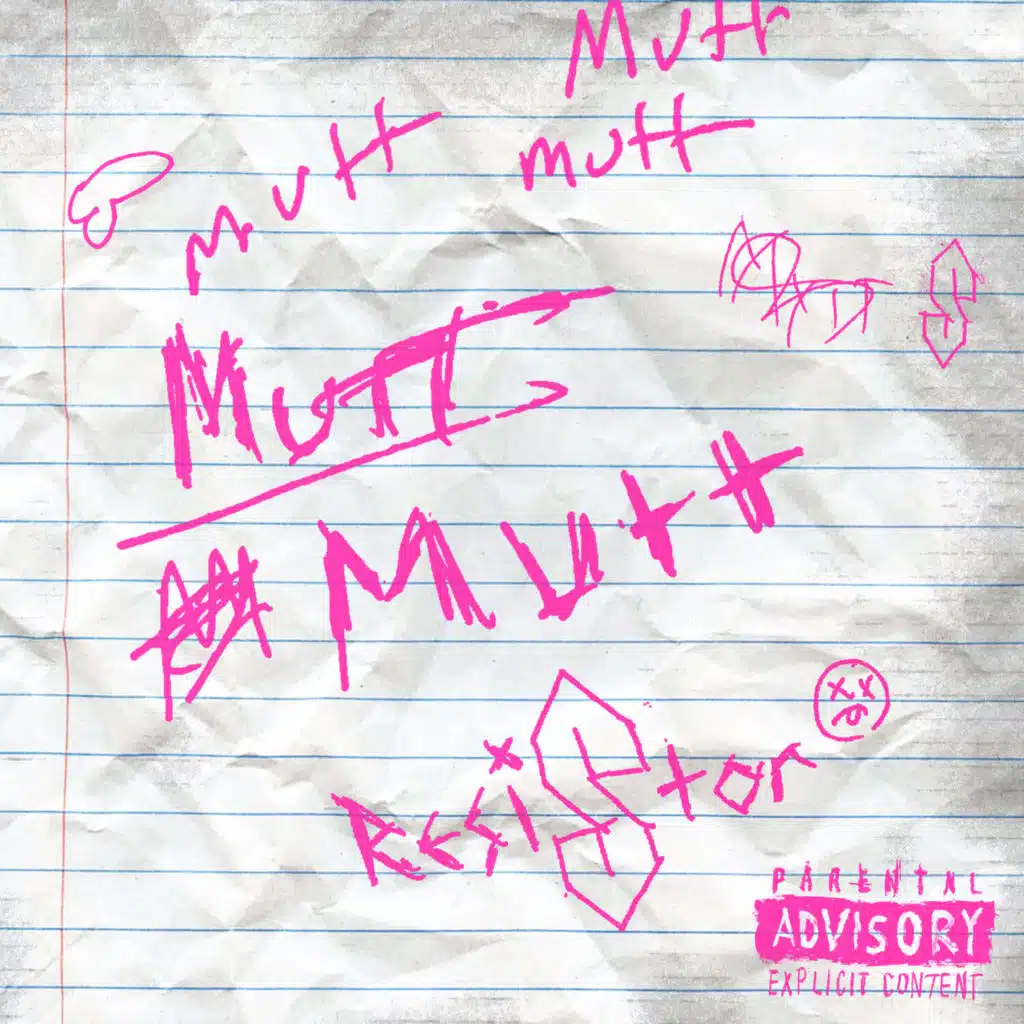 Mutt
mutt
Mutt
MuTT
Mutt
ResiStor
PARENTAL
ADVISORY
EXPLICIT CONTENT